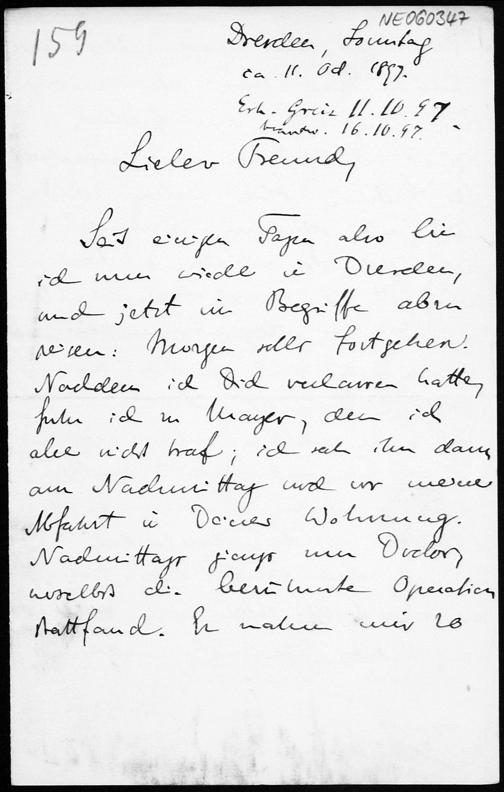 159
NE060347
Dresden, Sonntag
ca. 11. Oct. 1897.
Erh. Greiz 11.10.97
Beantw. 16.10.97.
Lieber Freund,
Seit einigen Tagen also bin
ich nun wieder in Dresden,
und jetzt im Begriffe abzu
reisen: Morgen solls fortgehen.
Nachdem ich Dich verlassen hatte,
fuhr ich zu Mayer, den ich
aber nicht traf; ich sah ihn dann
am Nachmittag und vor meiner
Abfahrt in Deiner Wohnung.
Nachmittags giengs zum Doctor,
woselbst die berühmte Operation
stattfand. Er nahm mir 20